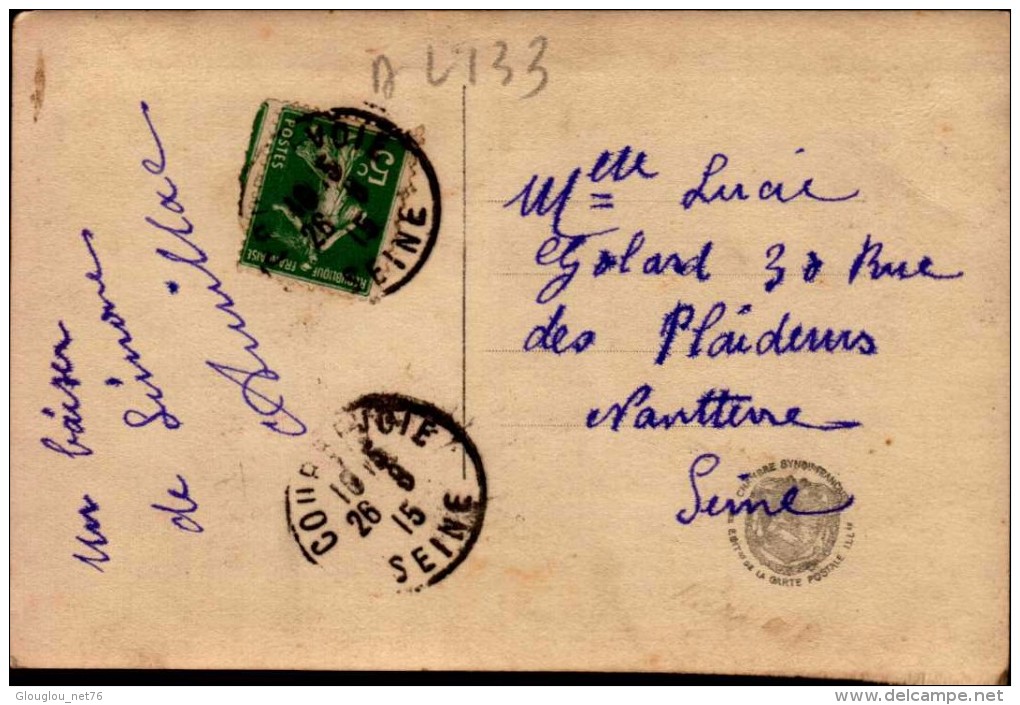 un baiser
de Simone
A L133
POSTES
5c
REPUBLIQUE FRANÇAISE
SEINE
26
15
COURBEVOIE
26 8
15
SEINE
Melle Lucie
Golard 30 Rue
des Plaideurs
Nantterre
Seine
CHAMBRE SYNDle FRANÇAISE
DE LA CARTE POSTALE ILLée
Glouglou_net76
delcampe.net